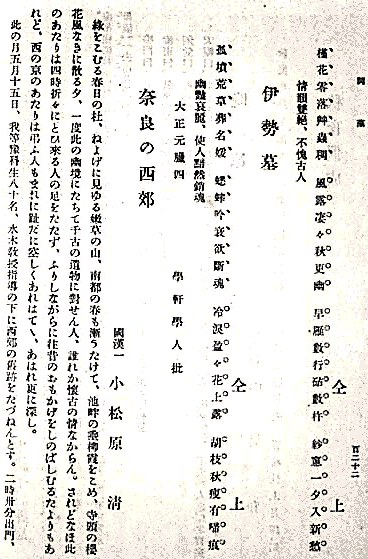 百二十二
槿花零落艸蟲稠　風露凄々秋更幽　早雁數行砧數杵　紗窻一夕入新愁
情韻雙絕、不愧古人
伊勢墓　仝　上
孤墳荒草葬名媛　蟋蟀吟哀欲斷魂　冷淚盈々花上露　胡枝秋瘦有啼痕
幽艷哀腕、使人黯然銷魂
大正元臘四　學軒學人批
奈良の西郊
國漢一　小松原　清
綠をこむる春日の杜、ねよげに見ゆる嫩草の山、南都の春も漸うたけて、池畔の垂柳霞をこめ、寺頭の櫻
花風なきに散る夕、一度此の幽境にたちて千古の遺物に對せん人、誰れか懷古の情なからん。されどなほ此
のあたりは四時折々にとひ來る人の足をたたず、ふりしながらに往昔のおもかげをしのばしむるたよりもあ
れど、西の京のあたりは弔ふ人もまれに趾だに空しくあれはてゝ、あはれ更に深し。
此の月五月十五日、我等豫科生八十名、水木敎授指導の下に西郊の舊跡をたづねんとす。二時卅分出門、